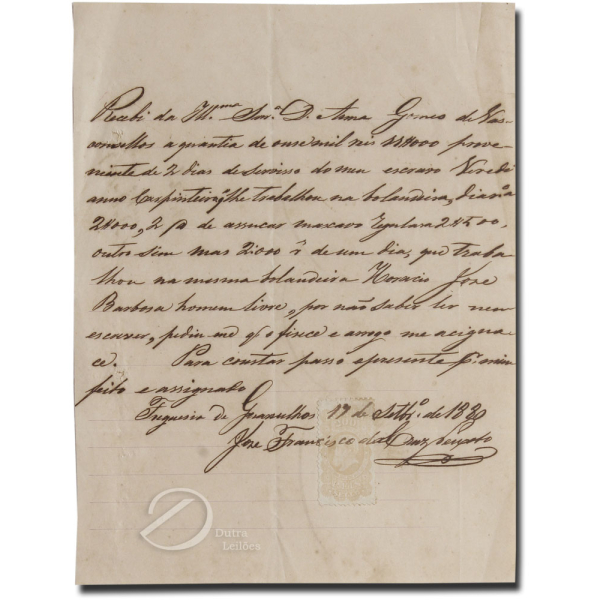 Recebi da Ill.ma Snr.ª D. Anna Gomes de Vas-
concellos a quantia de onse mil reis 11#000 prove-
niente de 2 dias de servisso do meu escravo
anno Carpinteiro, q lhe trabalhou na bolandeira, diaria
2#000, 2 @ de assucar mascavo Regulara 2#500,
outro sim mas 2:000 r. de um dia, que traba
lhou na mesma bolandeira Horacio José
Barbosa homem livre, por não saber ler nem
escrever, pediu me q o fisece e a rogo me acigna-
ce. Para constar passo apresente p.r mim
feito e assignado
Freguesia de 17 de Setbr.º de 1880
José Francisco da Cruz Peixoto
Dutra
Leilões